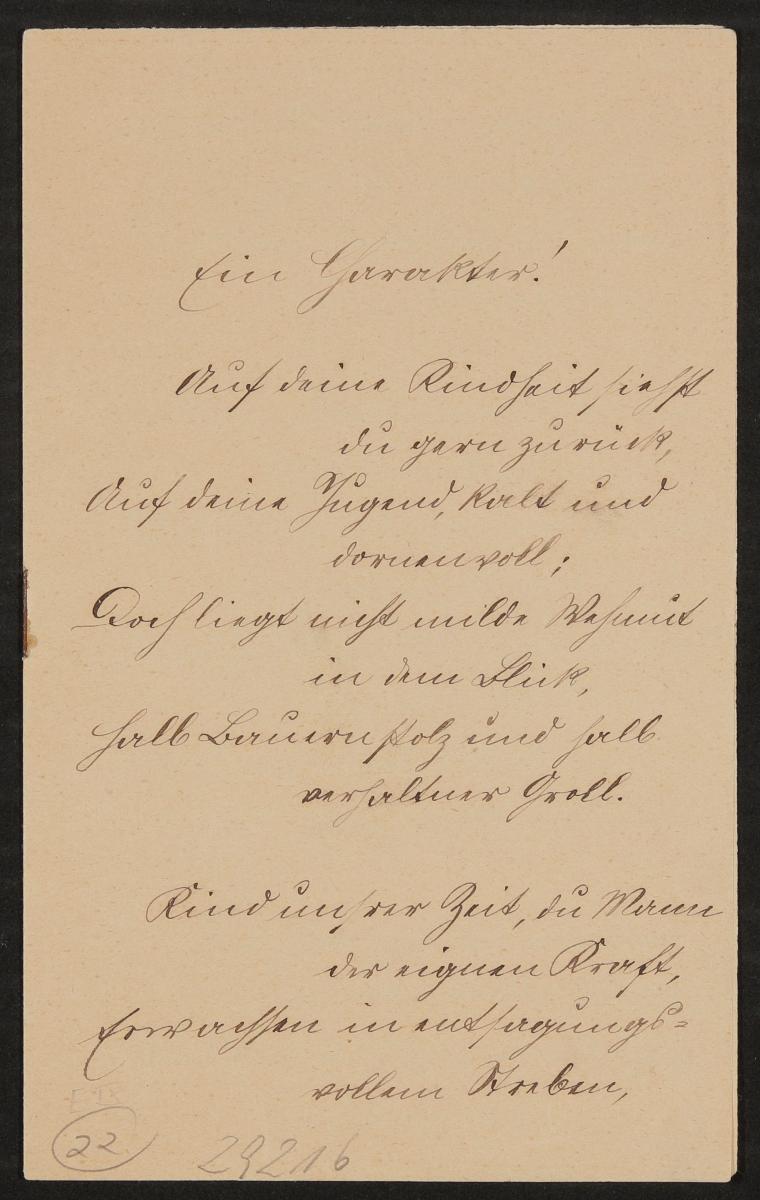 Ein Charakter!
Auf deine Kindheit siehst
du gern zurück,
Auf deine Jugend, kalt und
dornenvoll;
Doch liegt nicht milde Wehmut
in dem Blick,
Halb Bauernstolz und halb
verhaltner Groll.
Kind unsrer Zeit, du Mann
der eignen Kraft,
Erwachsen in entsagungs-
vollem Streben,
22
29216